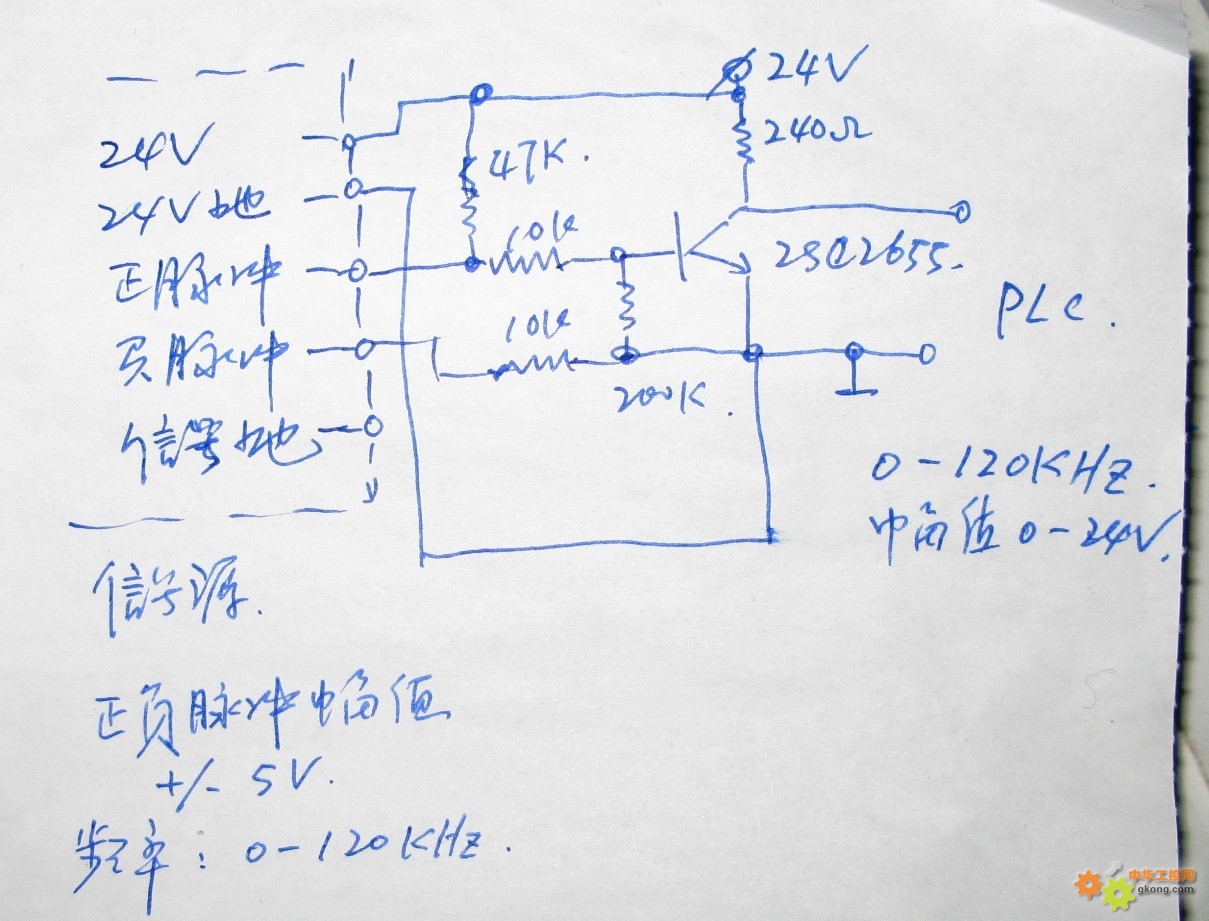 24V
240Ω
24V
47K.
24V地
10K
2SC2655.
正脉冲
PLC.
负脉冲
10K
200K.
信号地
0-120KHz.
幅值 0-24V.
信号源.
正负脉冲幅值
+/- 5V.
频率: 0-120KHz.
中华工控网
gkong.com